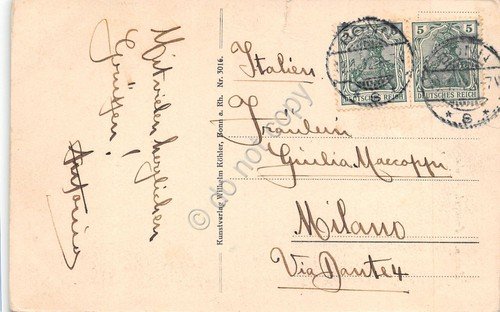 Mit vielen herzlichen
Grüssen!
Antonio
Kunstverlag Wilhelm Köhler, Bonn a. Rh. Nr. 3016.
BONN
DEUTSCHES REICH
5
5
DEUTSCHES REICH
Italien
Fräulein
Giulia Maccoppi
Milano
Via Dante 4
do not copy